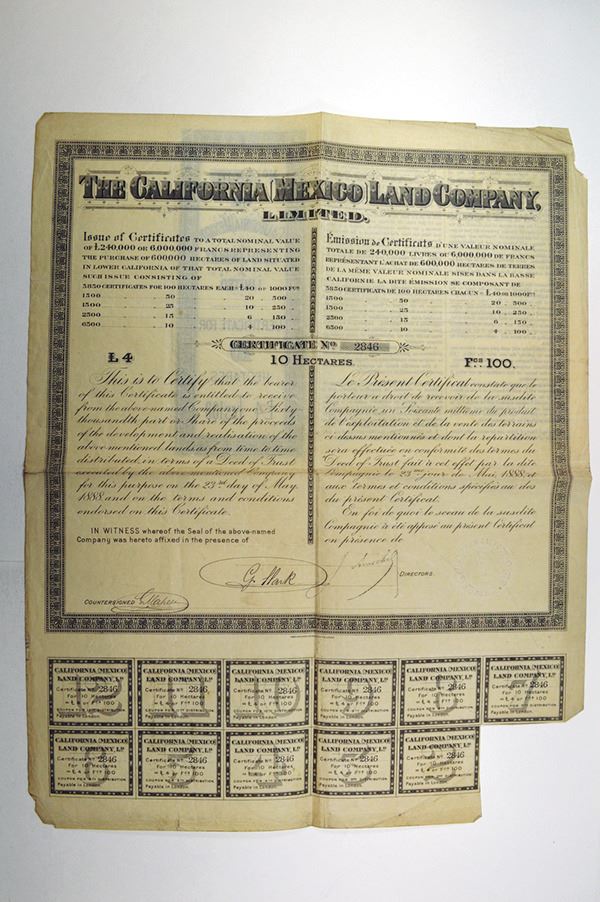 THE CALIFORNIA (MEXICO) LAND COMPANY,
LIMITED.
Issue of Certificates TO A TOTAL NOMINAL VALUE
OF £240,000 OR 6,000,000 FRANCS REPRESENTING
THE PURCHASE OF 600000 HECTARES OF LAND SITUATED
IN LOWER CALIFORNIA OF THAT TOTAL NOMINAL VALUE
SUCH ISSUE CONSISTING OF
3850 CERTIFICATES FOR 100 HECTARES EACH = £40 OR 1000 Fcs
1500 .. 50 .. 20 .. 500 ..
1500 .. 25 .. 10 .. 250 ..
2500 .. 15 .. 6 .. 150 ..
6500 .. 10 .. 4 .. 100 ..
Émission de Certificats D'UNE VALEUR NOMINALE
TOTALE DE 240,000 LIVRES OU 6,000,000 DE FRANCS
REPRÉSENTANT L'ACHAT DE 600,000 HECTARES DE TERRES
DE LA MÊME VALEUR NOMINALE SISES DANS LA BASSE
CALIFORNIE LA DITE ÉMISSION SE COMPOSANT DE
3850 CERTIFICATS DE 100 HECTARES CHACUN = £40 OU 1000 Fcs
1500 .. 50 .. 20 .. 500 ..
1500 .. 25 .. 10 .. 250 ..
2500 .. 15 .. 6 .. 150 ..
6500 .. 10 .. 4 .. 100 ..
CERTIFICATE No 2846
£4 10 HECTARES Fcs 100.
This is to Certify that the bearer
of this Certificate is entitled to receive
from the above-named Company one Sixty
thousandth part or Share of the proceeds
of the development and realisation of the
above-mentioned lands as from time to time
distributed in terms of a Deed of Trust
executed by the above-mentioned Company
for this purpose on the 23rd day of May
1888 and on the terms and conditions
endorsed on this Certificate.
IN WITNESS whereof the Seal of the above-named
Company was hereto affixed in the presence of
Le Présent Certificat constate que le
porteur a droit de recevoir de la susdite
Compagnie un Soixante millième du produit
de l'exploitation et de la vente des terrains
ci dessus mentionnés et dont la repartition
sera effectuée en conformité des termes du
Deed of Trust fait à cet effet par la dite
Compagnie le 23me jour de Mai, 1888 et
aux termes et conditions spécifiés au dos
du présent Certificat.
En foi de quoi le sceau de la susdite
Compagnie à été apposé au présent Certificat
en présence de
DIRECTORS.
COUNTERSIGNED
CALIFORNIA (MEXICO)
LAND COMPANY, Ld
Certificate No 2846
For 10 Hectares
=£4 or Fcs 100
Payable in London.
CALIFORNIA (MEXICO)
LAND COMPANY, Ld
Certificate No 2846
For 10 Hectares
=£4 or Fcs 100
Payable in London.
CALIFORNIA (MEXICO)
LAND COMPANY, Ld
Certificate No 2846
For 10 Hectares
=£4 or Fcs 100
Payable in London.
CALIFORNIA (MEXICO)
LAND COMPANY, Ld
Certificate No 2846
For 10 Hectares
=£4 or Fcs 100
Payable in London.
CALIFORNIA (MEXICO)
LAND COMPANY, Ld
Certificate No 2846
For 10 Hectares
=£4 or Fcs 100
Payable in London.
CALIFORNIA (MEXICO)
LAND COMPANY, Ld
Certificate No 2846
For 10 Hectares
=£4 or Fcs 100
Payable in London.
CALIFORNIA (MEXICO)
LAND COMPANY, Ld
Certificate No 2846
For 10 Hectares
=£4 or Fcs 100
Payable in London.
CALIFORNIA (MEXICO)
LAND COMPANY, Ld
Certificate No 2846
For 10 Hectares
=£4 or Fcs 100
Payable in London.
CALIFORNIA (MEXICO)
LAND COMPANY, Ld
Certificate No 2846
For 10 Hectares
=£4 or Fcs 100
Payable in London.
CALIFORNIA (MEXICO)
LAND COMPANY, Ld
Certificate No 2846
For 10 Hectares
=£4 or Fcs 100
Payable in London.
CALIFORNIA (MEXICO)
LAND COMPANY, Ld
Certificate No 2846
For 10 Hectares
=£4 or Fcs 100
Payable in London.